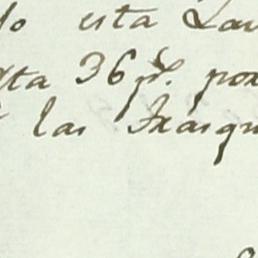 do esta Lav
sta 36 ps. por
las Frasqu